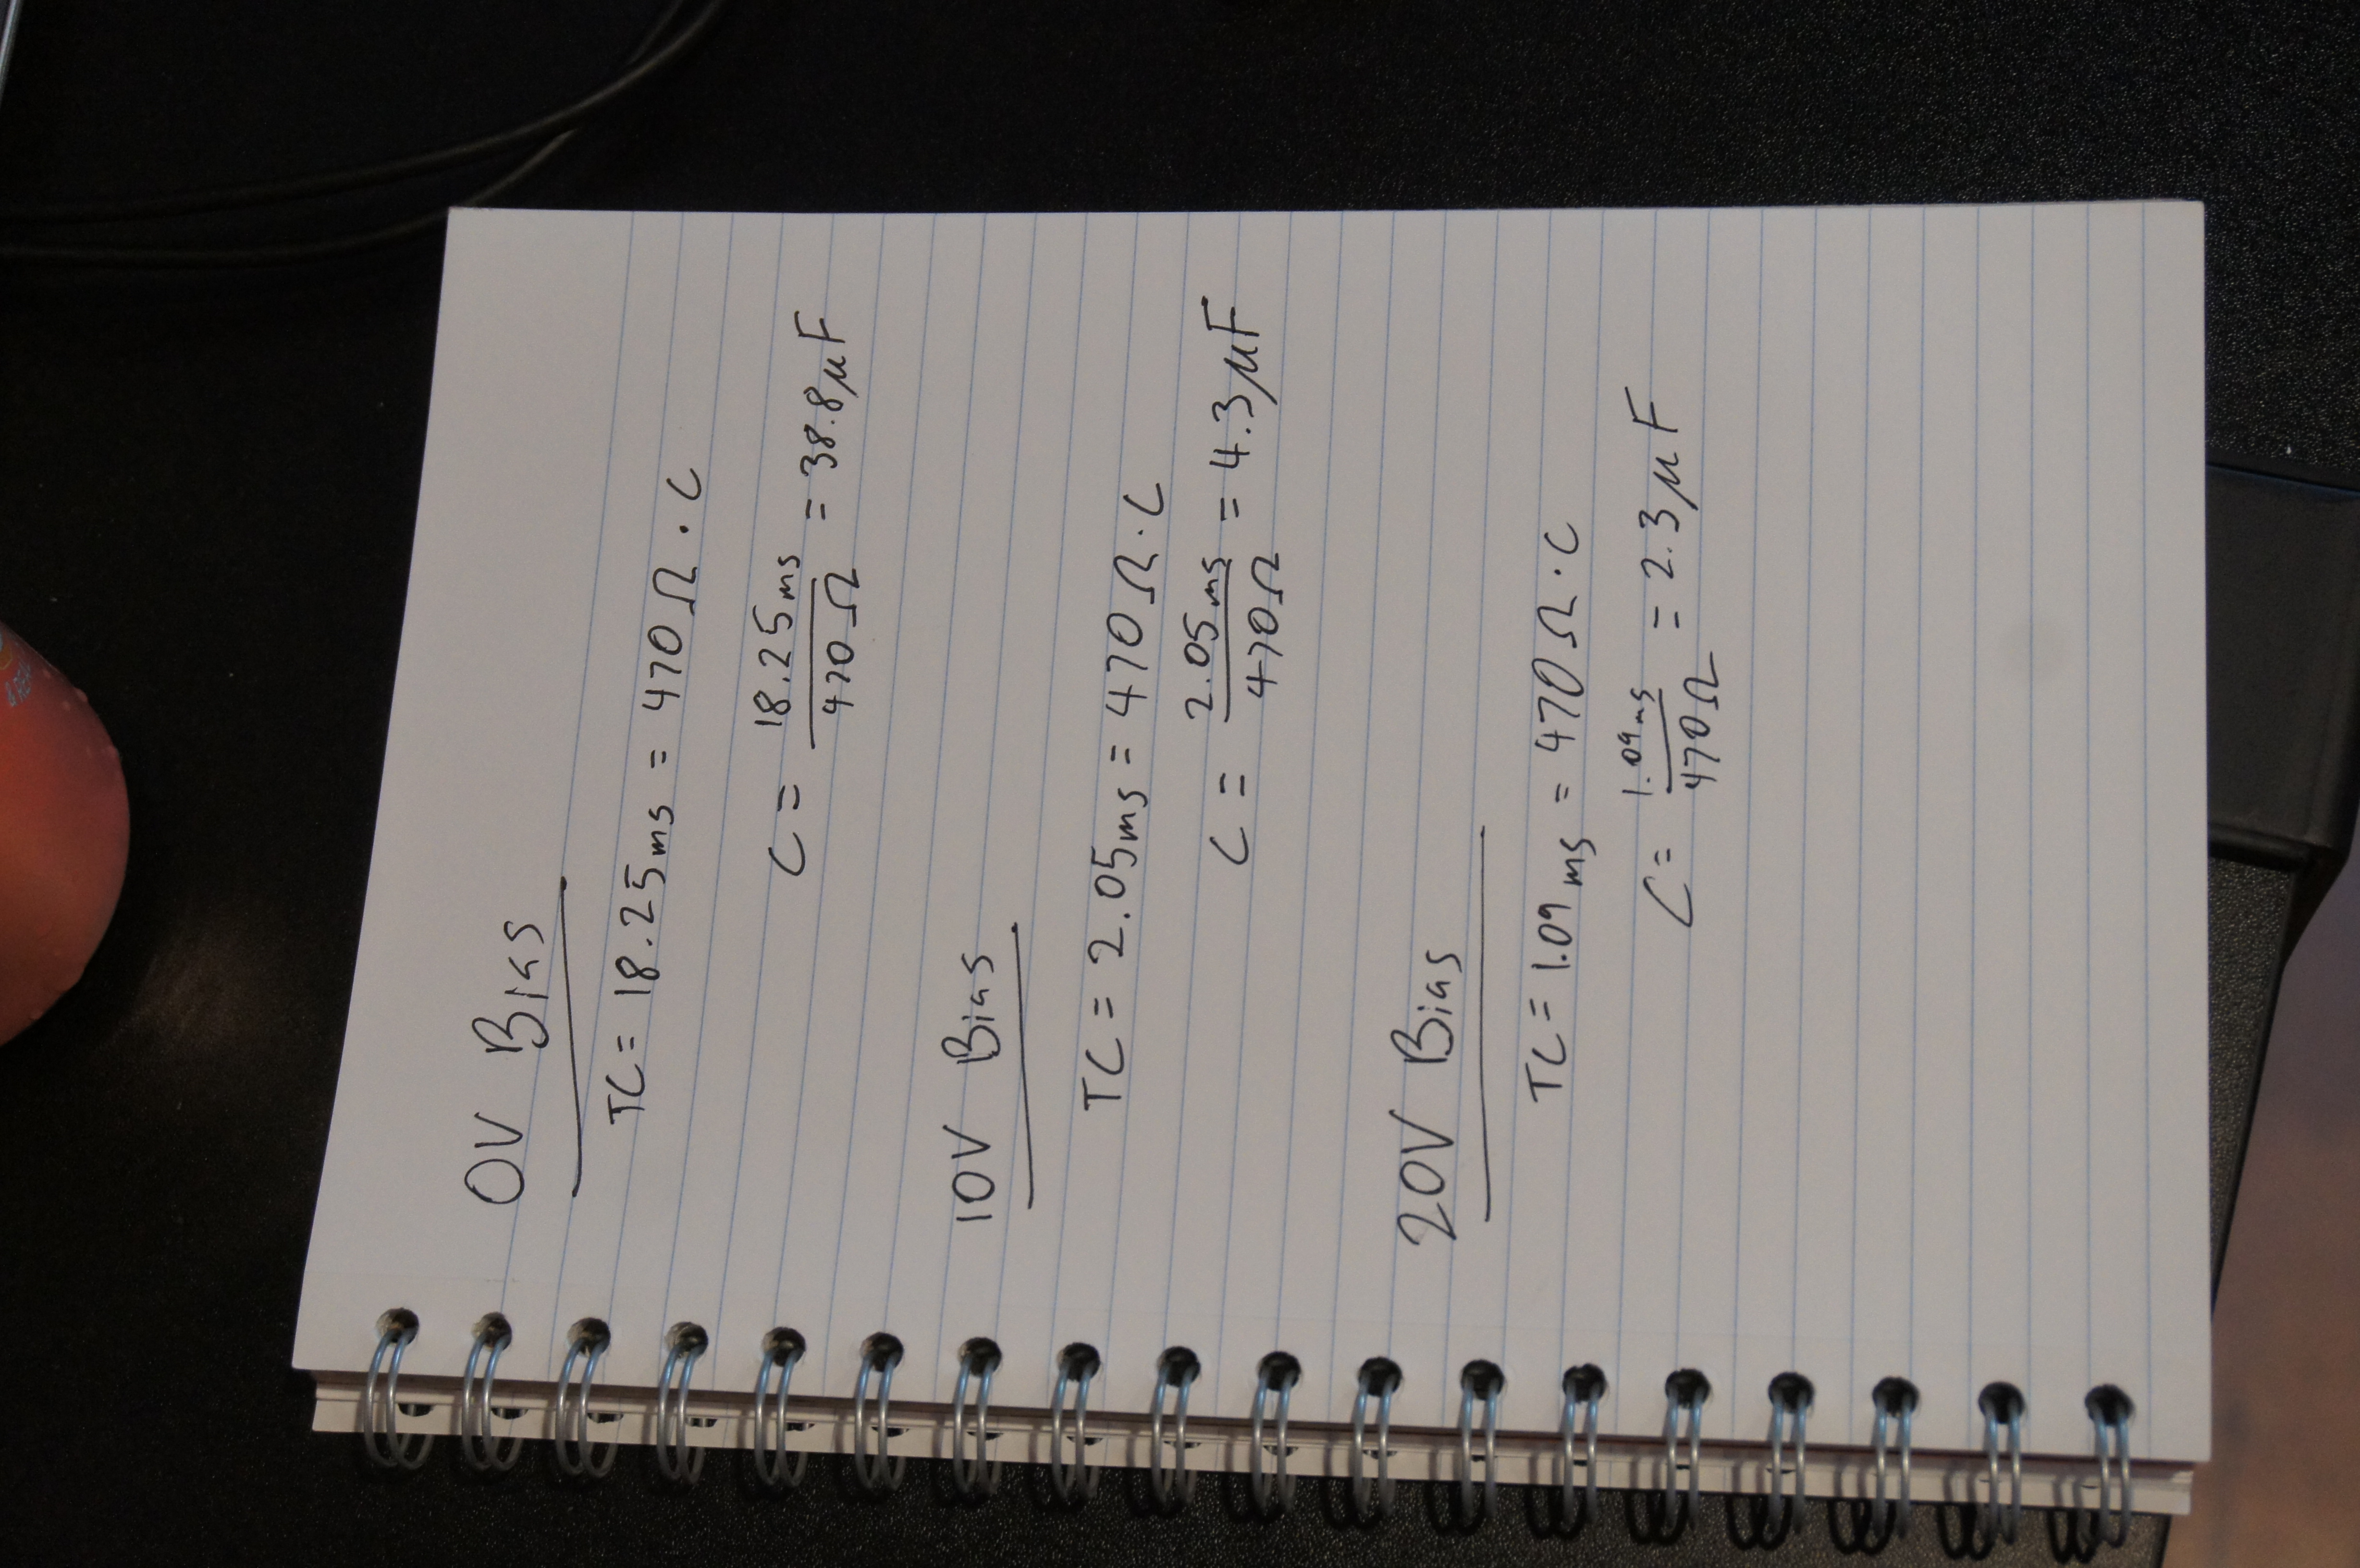 0V Bias
TC = 18.25ms = 470Ω · C
C = 18.25ms / 470Ω = 38.8μF
10V Bias
TC = 2.05ms = 470Ω · C
C = 2.05ms / 470Ω = 4.3μF
20V Bias
TC = 1.09ms = 470Ω · C
C = 1.09ms / 470Ω = 2.3μF